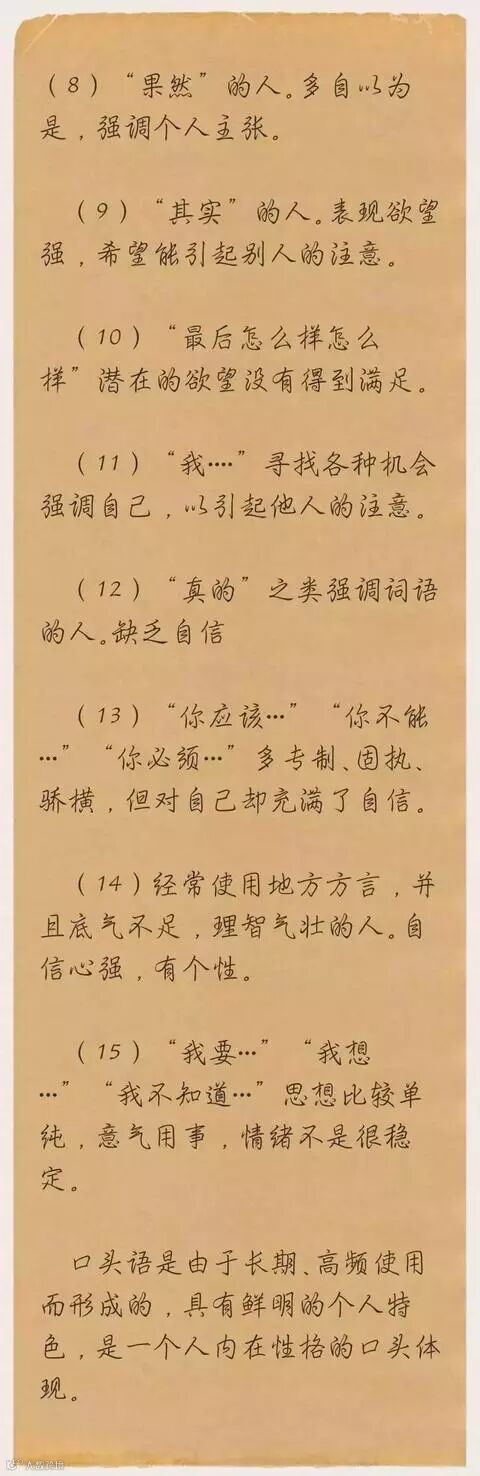 （8）“果然”的人。多自以为
是，强调个人主张。
（9）“其实”的人。表现欲望
强，希望能引起别人的注意。
（10）“最后怎么样怎么
样”潜在的欲望没有得到满足。
（11）“我····”寻找各种机会
强调自己，以引起他人的注意。
（12）“真的”之类强调词语
的人。缺乏自信
（13）“你应该…”“你不能
…”“你必须…”多专制、固执、
骄横，但对自己却充满了自信。
（14）经常使用地方方言，并
且底气不足，理智气壮的人。自
信心强，有个性。
（15）“我要…”“我想
…”“我不知道…”思想比较单
纯，意气用事，情绪不是很稳
定。
口头语是由于长期、高频使用
而形成的，具有鲜明的个人特
色，是一个人内在性格的口头体
现。